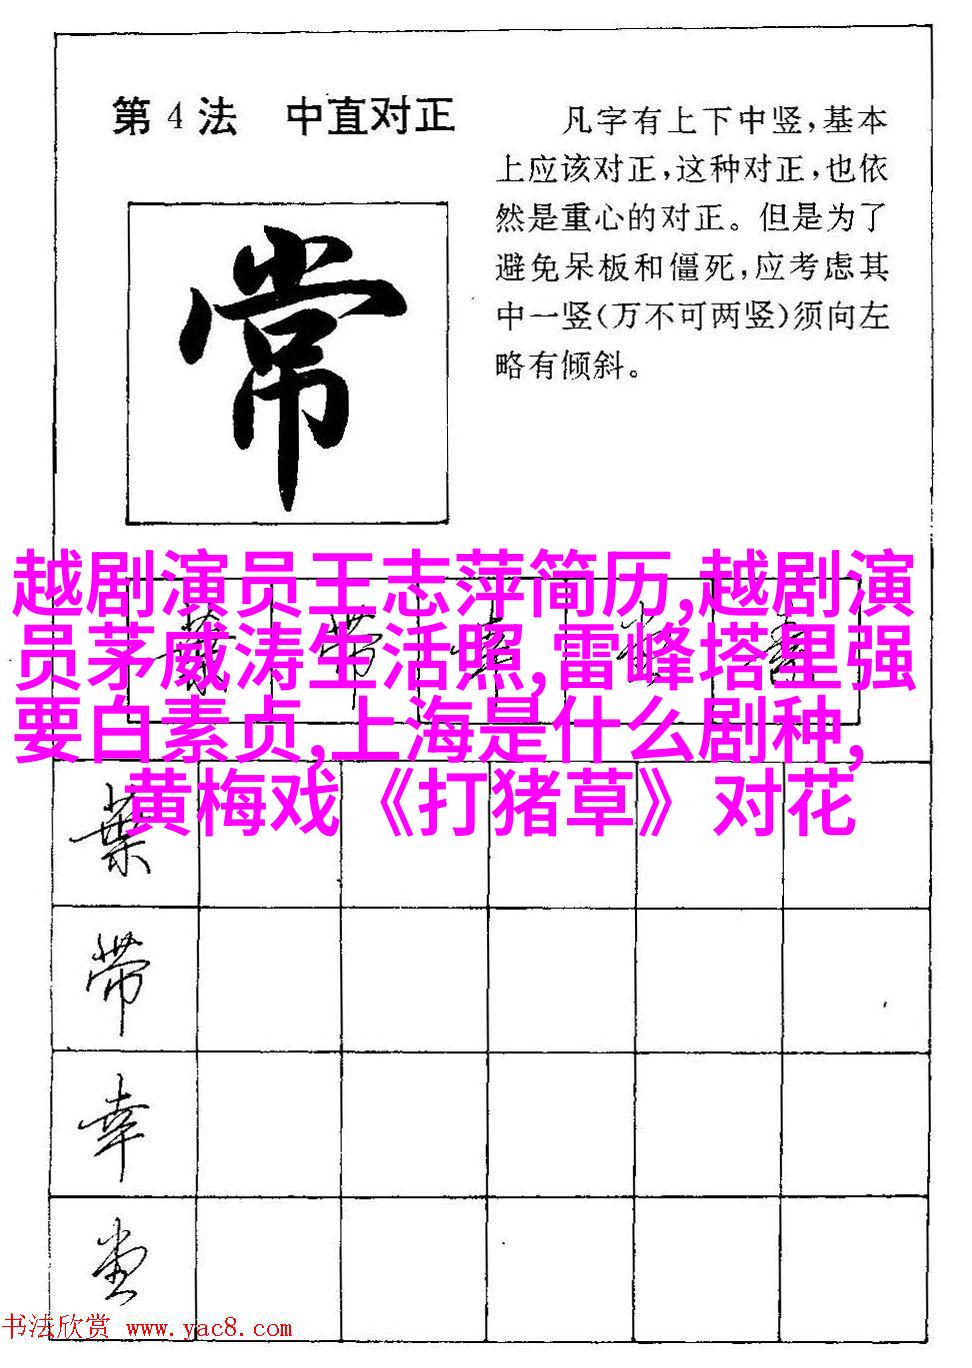 第4法 中直对正
凡字有上下中竖,基本
上应该对正,这种对正,也依
然是重心的对正。但是为了
避免呆板和僵死,应考虑其
中一竖(万不可两竖)须向左
略有倾斜。
常
越剧演员王志萍简历,越剧演
员茅威涛生活照,雷峰塔里强
要白素贞,上海是什么剧种,
黄梅戏《打猪草》对花
葉
带
幸
堂
书法欣赏 www.yac8.com